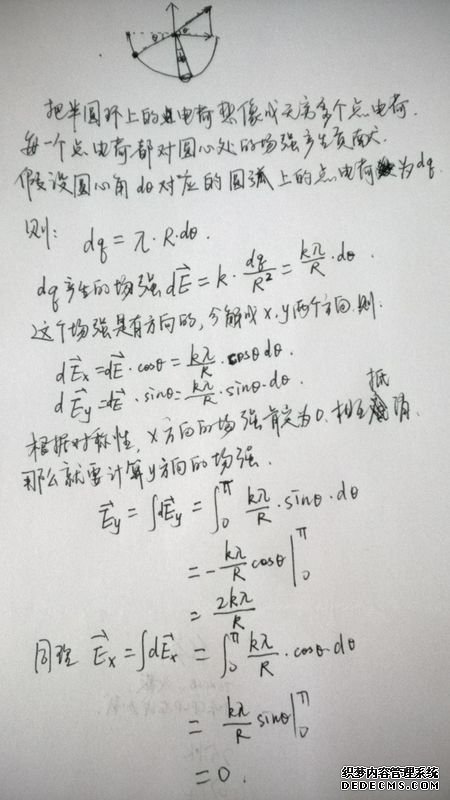 把半圆环上的电荷想像成无穷多个点电荷.
每一个点电荷都对圆心处的场强产生贡献.
假设圆心角dθ对应的圆弧上的点电荷为dq.
则: dq = λ·R·dθ.
dq产生的场强dE⃗ = k·dq/R² = kλ/R·dθ.
这个场强是有方向的,分解成x,y两个方向.则:
dE⃗x = dE⃗·cosθ = kλ/R·cosθdθ.
dE⃗y = dE⃗·sinθ = kλ/R·sinθ·dθ.
根据对称性, x方向的场强肯定为0.相互抵消.
那么就要计算y方向的场强.
E⃗y = ∫dE⃗y = ∫₀^π kλ/R·sinθ·dθ
= -kλ/R cosθ|₀^π
= 2kλ/R
同理 E⃗x = ∫dE⃗x = ∫₀^π kλ/R·cosθ·dθ
= kλ/R sinθ|₀^π
= 0.
织梦内容管理系统
DEDECMS.COM